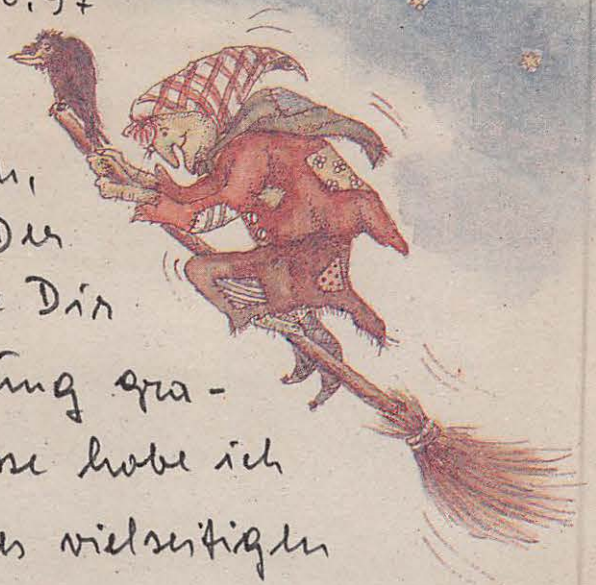 97
n,
Der
Dir
ung gra-
se habe ich
es vielseitigen